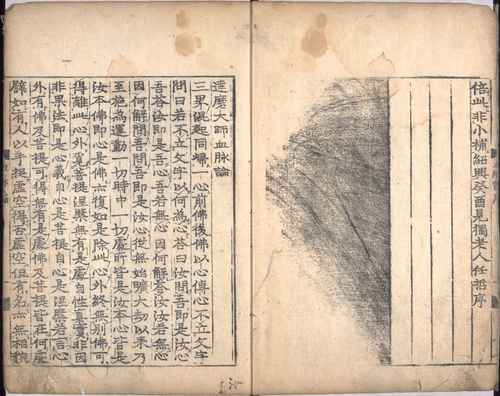 倍此非小補紹興癸酉見獨老人任哲序
達磨大師血脉論
三界混起同歸一心前佛後佛以心傳心不立文字
問曰若不立文字以何為心荅曰汝問吾即是汝心
吾荅汝即是吾心吾若無心因何解荅汝汝若無心
因何解問吾問吾即是汝心從無始曠大劫以來乃
至施為運動一切時中一切處所皆是汝本心皆是
汝本佛即心是佛亦復如是除此心外終無別佛可
得離此心外覓菩提涅槃無有是處自性真實非因
非果法即是心義自心是菩提自心是涅槃若言心
外有佛及菩提可得無有是處佛及菩提皆在何處
譬如有人以手捉虛空得否虛空但有名亦無相貌